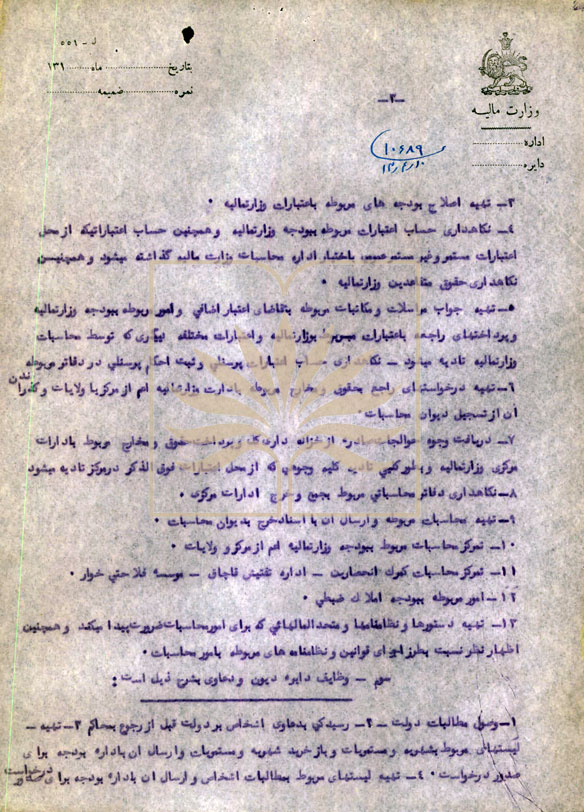 ل - ۵۵۱
بتاریخ ماه ۱۳۱
نمره ضمیمه
وزارت مالیه
اداره
دایره
-۳-
۱۰۶۸۹
۳- تهیه اصلاح بودجه های مربوطه باعتبارات وزارتمالیه ۰
۴- نگاهداری حساب اعتبارات مربوطه ببودجه وزارتمالیه و همچنین حساب اعتباراتیکه از محل
اعتبارات مستمر و غیر مستمر باختیار اداره محاسبات وزارت مالیه گذاشته میشود و همچنین
نگاهداری حقوق متقاعدین وزارتمالیه ۰
۵- تهیه جواب مراسلات و مکاتبات مربوطه بتقاضای اعتبار اضافی و امور مربوطه ببودجه وزارتمالیه
و پرداختهای راجعه باعتبارات مربوط بوزارتمالیه و اعتبارات مختلفه دیگری که توسط محاسبات
وزارتمالیه تادیه میشود - نگاهداری حساب اعتبارات پرسنلی و ثبت احکام پرسنلی در دفاتر مربوطه
۶- تهیه درخواستهای راجع بحقوق و مخارج مربوطه بادارات وزارتمالیه اعم از مرکز یا ولایات و گذراندن
آن از تسجیل دیوان محاسبات ۰
۷- دریافت وجوه حوالجات صادره از خزانه داری کل و پرداخت حقوق و مخارج مربوط بادارات
مرکزی وزارتمالیه و بطور کلی تادیه کلیه وجوهی که از محل اعتبارات فوق الذکر در مرکز تادیه میشود
۸- نگاهداری دفاتر محاسباتی مربوط بجمع و خرج ادارات مرکزی ۰
۹- تهیه محاسبات مربوطه و ارسال آن با اسناد خرج بدیوان محاسبات ۰
۱۰- تمرکز محاسبات مربوط ببودجه وزارتمالیه اعم از مرکز و ولایات ۰
۱۱- تمرکز محاسبات گمرک انحصارین - اداره تفتیش قاچاق - موسسه فلاحتی خوار ۰
۱۲- امور مربوطه ببودجه املاک ضبطی ۰
۱۳- تهیه دستورها و نظامنامها و متحدالمالهائی که برای امور محاسبات ضرورت پیدا میکند و همچنین
اظهار نظر نسبت بطرز اجرای قوانین و نظامنامه های مربوطه بامور محاسبات ۰
سوم - وظایف دایره دیون و دعاوی بشرح ذیل است :
۱- وصول مطالبات دولت - ۲- رسیدگی بدعاوی اشخاص بر دولت قبل از رجوع بمحاکم ۳- تهیه -
لیستهای مربوط بشهریه و مستمریات و باز خرید شهریه و مستمریات و ارسال آن باداره بودجه برای
صدور درخواست ۰ ۴- تهیه لیستهای مربوط بمطالبات اشخاص و ارسال آن باداره بودجه برای صدور درخواست